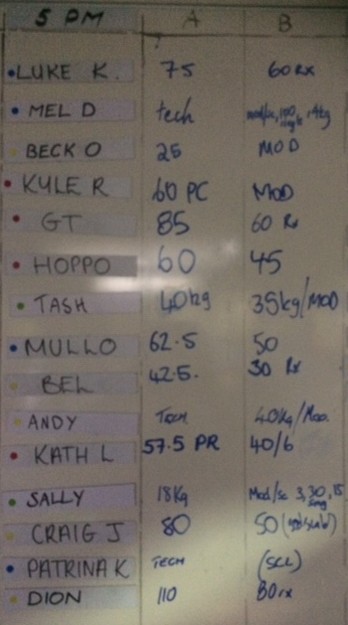 5 PM A B
LUKE K. 75 60 RX
MEL D tech
BECK O 25 MOD
KYLE R 60 PC MOD
GT 85 60 Rx
HOPPO 60 45
TASH 40kg 35kg/MOD
MULLO 62.5 50
BEL 42.5. 30 Rx
ANDY TECH 40Kg/Mod.
KATH L 57.5 PR 40/6
SALLY 18Kg Mod/sc 3,30,15
CRAIG J 80 50
PATRINA K TECH (SCL)
DION 110 80 rx